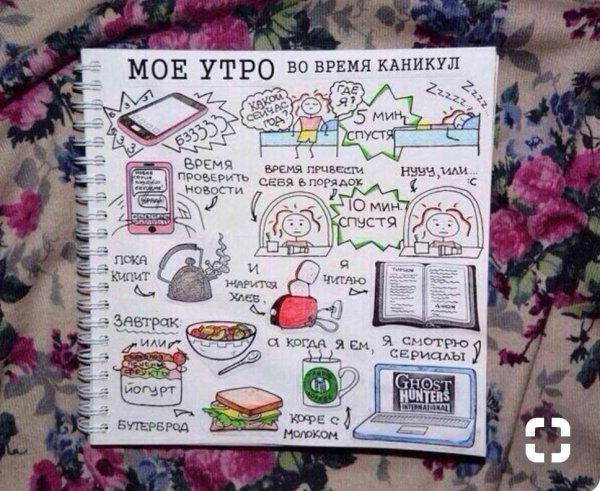 МОЕ УТРО ВО ВРЕМЯ КАНИКУЛ
БЗЗЗЗЗ
КАКОЙ
СЕЙЧАС
ГОД?
ГДЕ
Я?
5 МИН.
СПУСТЯ
ZZZZZ ZZZZ
ВРЕМЯ
ПРОВЕРИТЬ
НОВОСТИ
ВРЕМЯ ПРИВЕСТИ
СЕБЯ В ПОРЯДОК
10 МИН.
СПУСТЯ
НУУУ, ИЛИ...
:С
ПОКА
КИПИТ
И
ЖАРИТСЯ
ХЛЕБ,
Я
ЧИТАЮ
ЗАВТРАК:
ИЛИ
ЙОГУРТ
БУТЕРБРОД
А КОГДА Я ЕМ,
КОФЕ С
МОЛОКОМ
Я СМОТРЮ
СЕРИАЛЫ
GHOST
HUNTERS
INTERNATIONAL